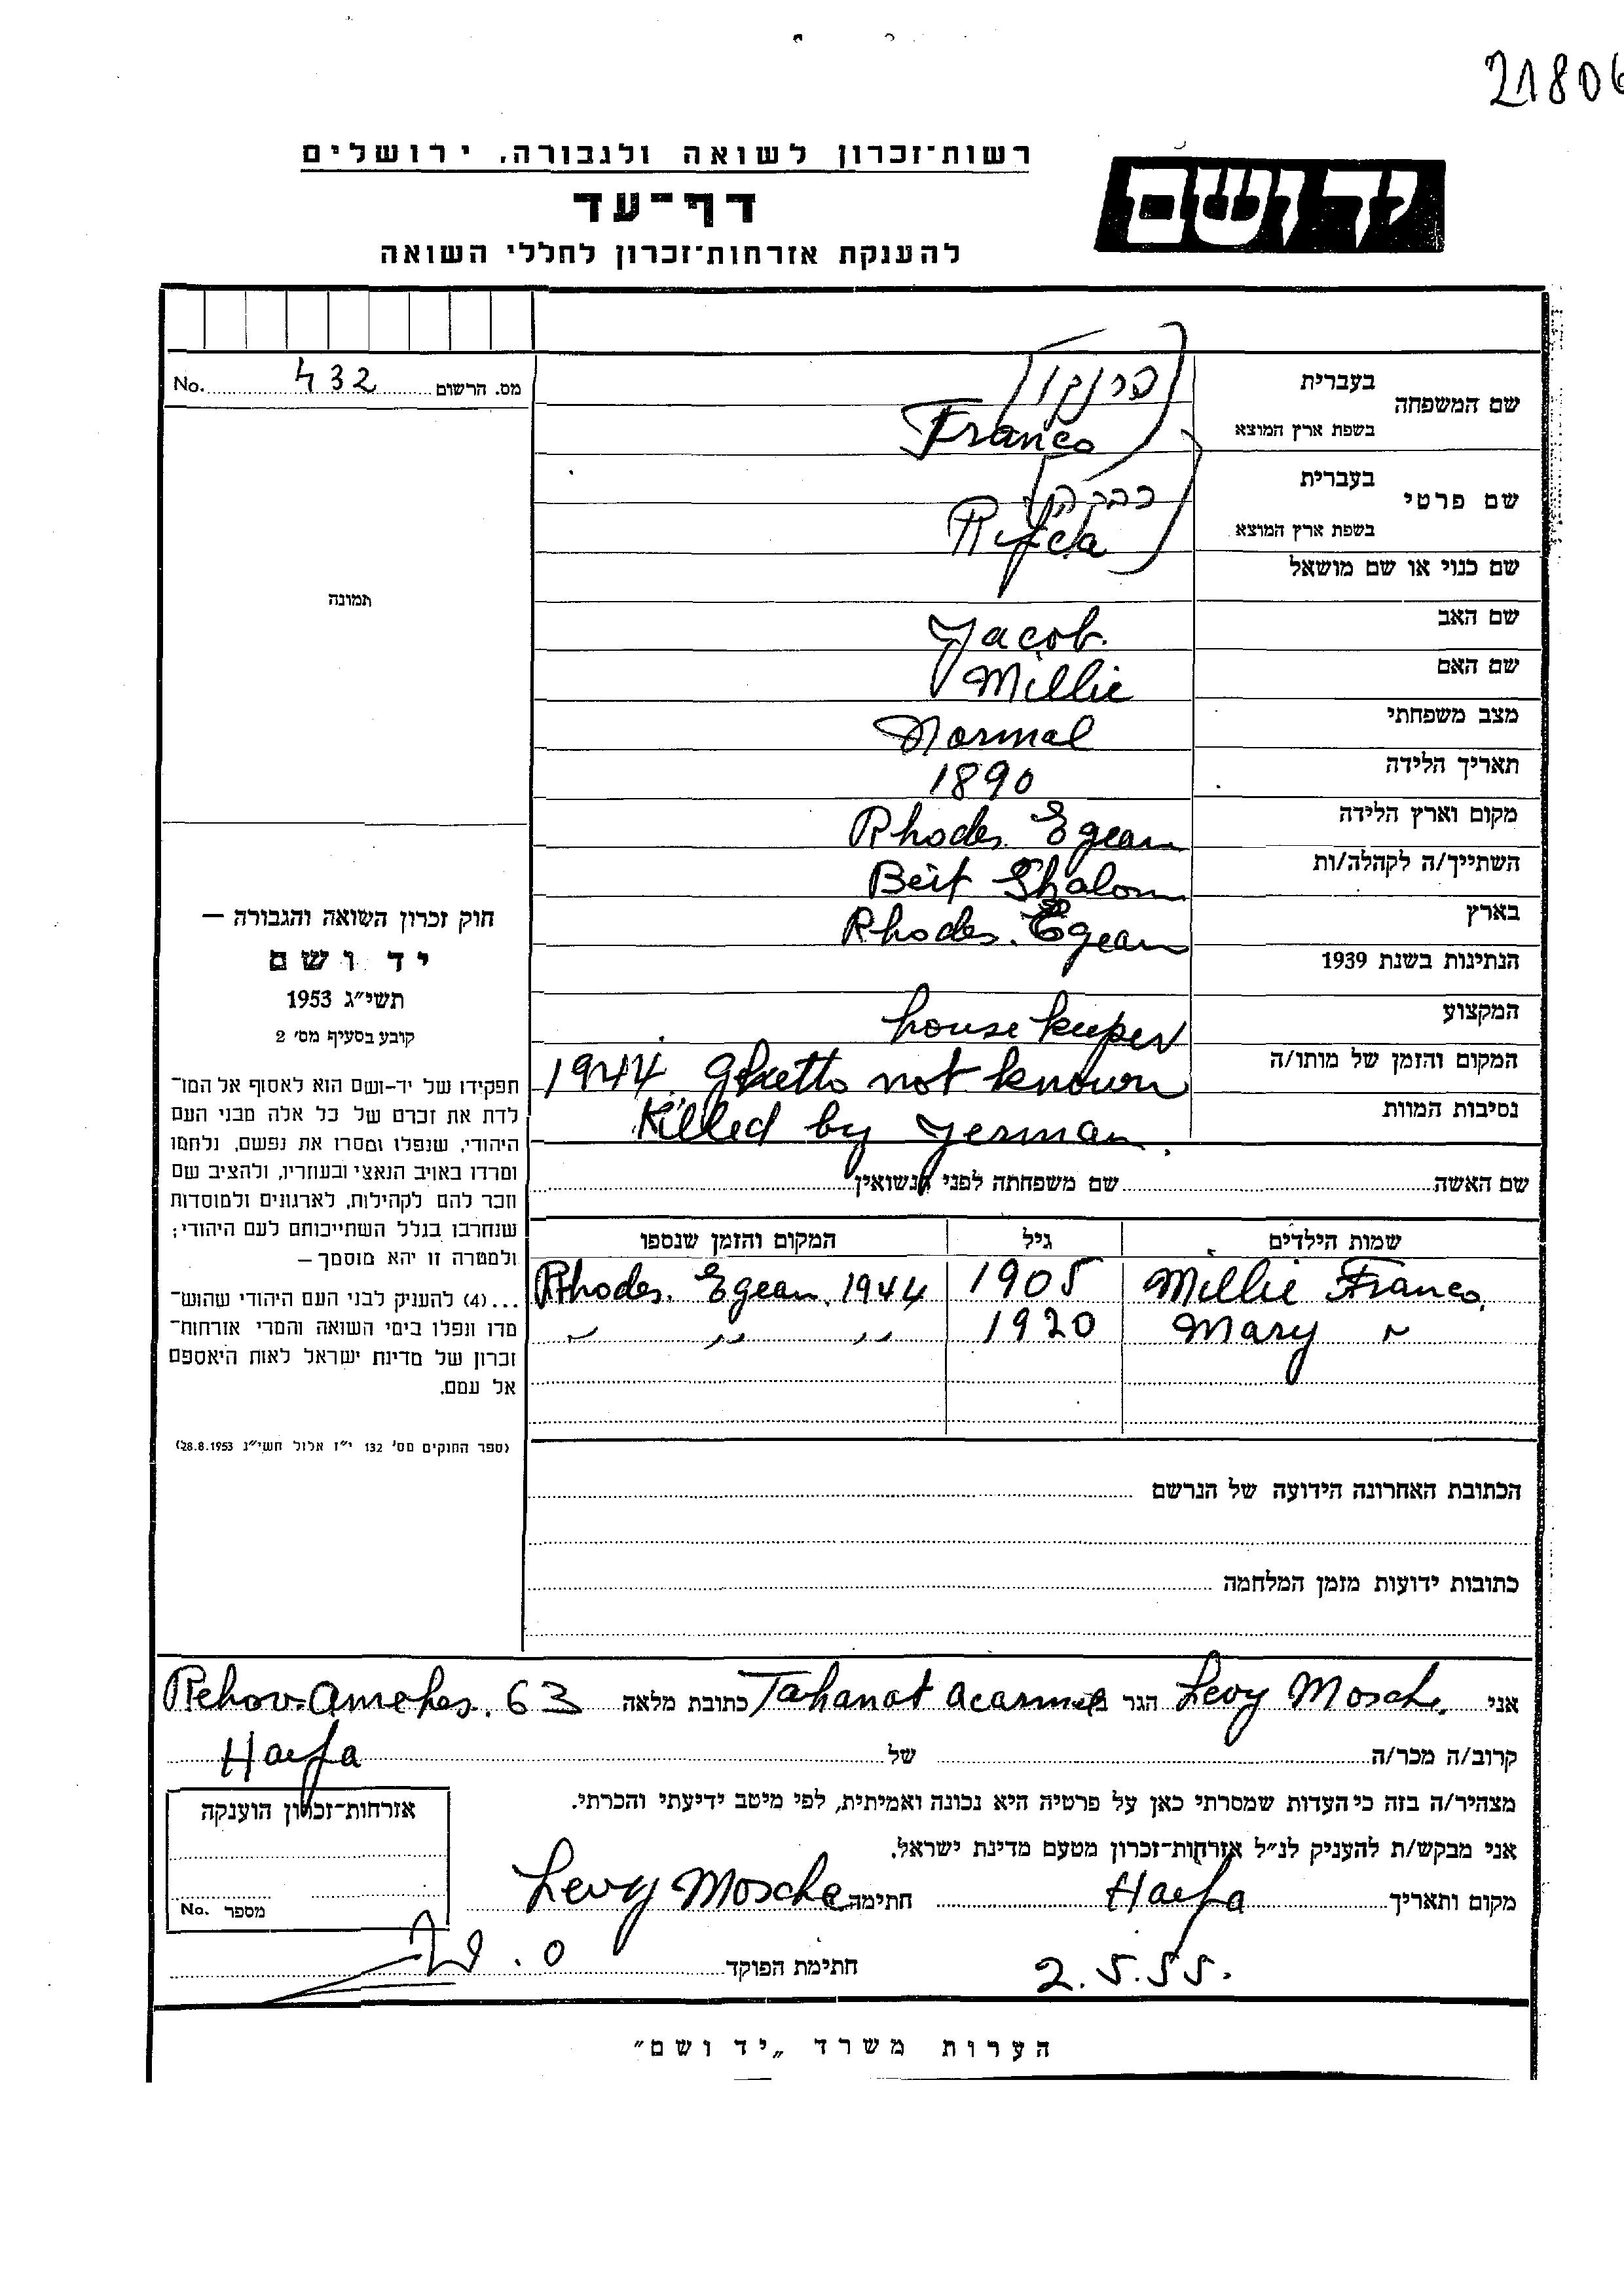 21806
רשות־זכרון לשואה ולגבורה, ירושלים
יד ושם
דף־עד
להענקת אזרחות־זכרון לחללי השואה
מס. הרשום 432 No.
שם המשפחה בעברית פרנקו
בשפת ארץ המוצא Franco
שם פרטי בעברית רבקה
בשפת ארץ המוצא Rifca
שם כנוי או שם מושאל
תמונה
שם האב Jacob.
שם האם Millie
מצב משפחתי Normal
תאריך הלידה 1890
מקום וארץ הלידה Rhodes. Egean
השתייך/ה לקהלה/ות Beit Shalom
בארץ Rhodes. Egean
הנתינות בשנת 1939
המקצוע house keeper
המקום והזמן של מותו/ה 1944. Ghetto not known
נסיבות המוות Killed by german.
שם האשה שם משפחתה לפני הנשואין
שמות הילדים גיל המקום והזמן שנספו
Millie Franco. 1905 Rhodes. Egean. 1944
Mary " 1920 " " "
חוק זכרון השואה והגבורה —
יד ושם
תשי״ג 1953
קובע בסעיף מס׳ 2
תפקידו של יד-ושם הוא לאסוף אל המו־
לדת את זכרם של כל אלה מבני העם
היהודי, שנפלו ומסרו את נפשם, נלחמו
ומרדו באויב הנאצי ובעוזריו, ולהציב שם
וזכר להם לקהילות, לארגונים ולמוסדות
שנחרבו בגלל השתייכותם לעם היהודי;
ולמטרה זו יהא מוסמך —
...(4) להעניק לבני העם היהודי שהוש־
מדו ונפלו בימי השואה והמרי אזרחות־
זכרון של מדינת ישראל לאות היאספם
אל עמם.
(ספר החוקים מס׳ 132 י״ז אלול תשי״ג 28.8.1953)
הכתובת האחרונה הידועה של הנרשם
כתובות ידועות מזמן המלחמה
אני Levy Mosche. הגר ב Tahanat acarmel כתובת מלאה Rehov. 63
קרוב/ה מכר/ה של Haefa
מצהיר/ה בזה כי העדות שמסרתי כאן על פרטיה היא נכונה ואמיתית, לפי מיטב ידיעתי והכרתי.
אני מבקש/ת להעניק לנ״ל אזרחות־זכרון מטעם מדינת ישראל.
מקום ותאריך Haefa חתימה Levy Mosche
2.5.55. חתימת הפוקד
אזרחות־זכרון הוענקה
מספר No.
הערות משרד „יד ושם״